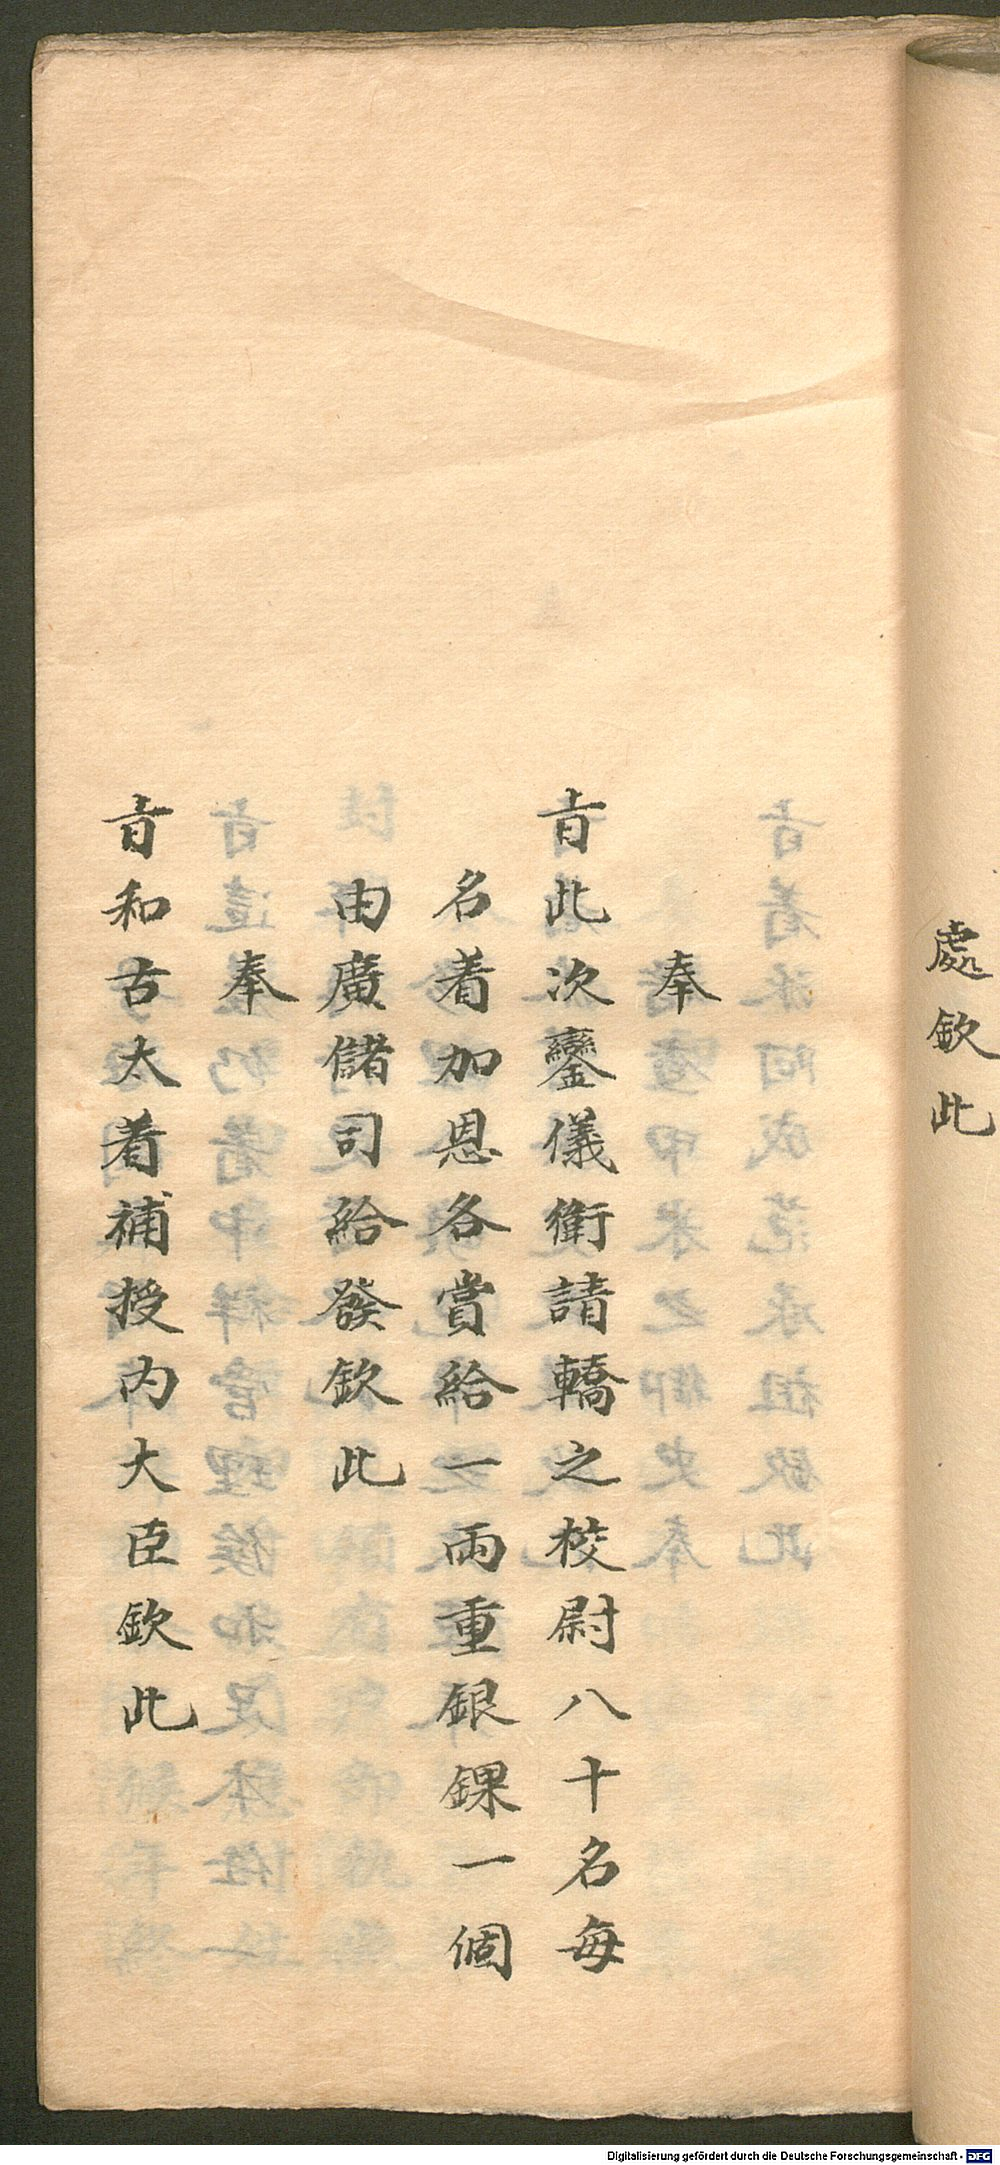 處欽此
奉
旨此次鑾儀衛請轎之校尉八十名每
名着加恩各賞給一兩重銀錁一個
由廣儲司給發欽此
奉
旨和古太着補授内大臣欽此
Digitalisierung gefördert durch die Deutsche Forschungsgemeinschaft - DFG